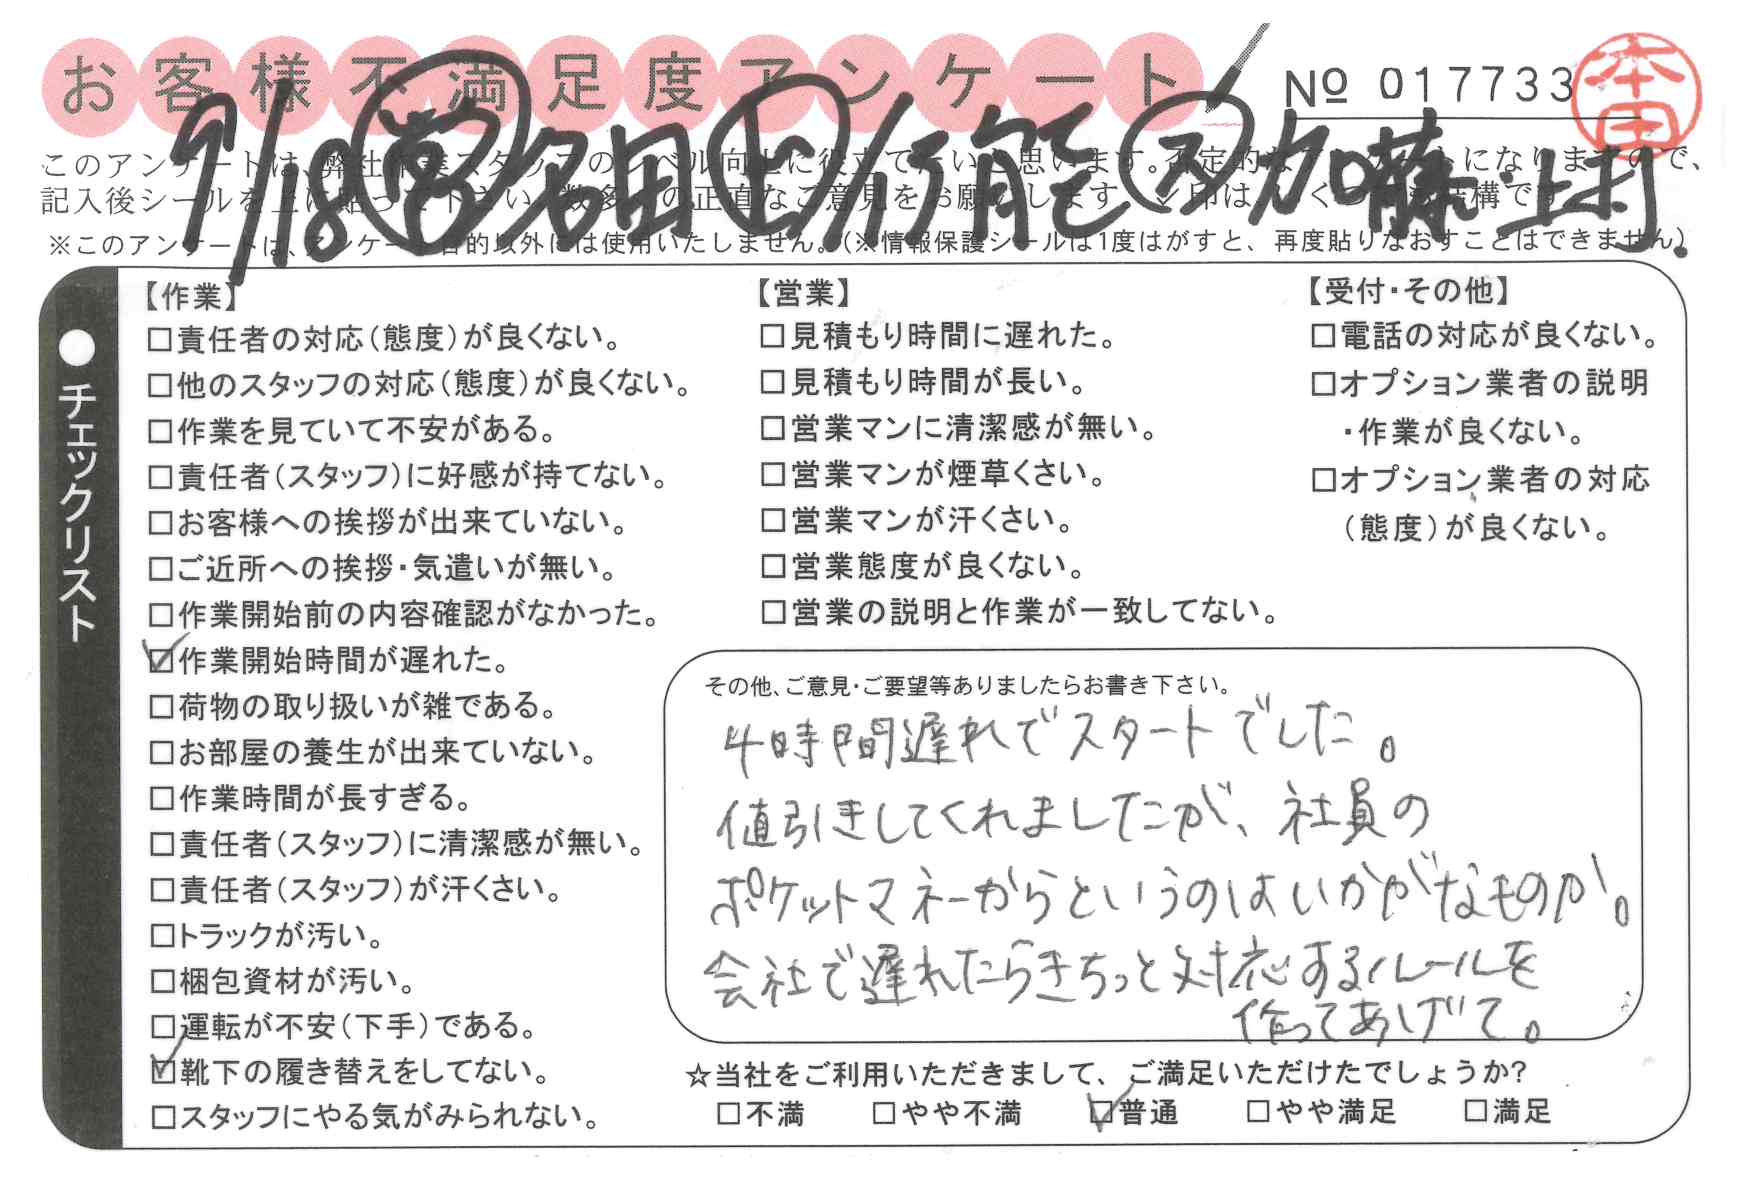 お客様不満足度アンケート
№ 017733
本田
9/18 営 名田 上 行能 加藤・上村
このアンケートは、弊社作業スタッフのレベル向上に役立てたいと思います。否定的なアンケートになりますので、
記入後シールを上に貼って下さい。数多くの正直なご意見をお願いします。✓印は、いくつでも結構です。
※このアンケートは、アンケート目的以外には使用いたしません。(※情報保護シールは1度はがすと、再度貼りなおすことはできません)
●チェックリスト
【作業】
□責任者の対応(態度)が良くない。
□他のスタッフの対応(態度)が良くない。
□作業を見ていて不安がある。
□責任者(スタッフ)に好感が持てない。
□お客様への挨拶が出来ていない。
□ご近所への挨拶・気遣いが無い。
□作業開始前の内容確認がなかった。
☑作業開始時間が遅れた。
□荷物の取り扱いが雑である。
□お部屋の養生が出来ていない。
□作業時間が長すぎる。
□責任者(スタッフ)に清潔感が無い。
□責任者(スタッフ)が汗くさい。
□トラックが汚い。
□梱包資材が汚い。
□運転が不安(下手)である。
☑靴下の履き替えをしてない。
□スタッフにやる気がみられない。
【営業】
□見積もり時間に遅れた。
□見積もり時間が長い。
□営業マンに清潔感が無い。
□営業マンが煙草くさい。
□営業マンが汗くさい。
□営業態度が良くない。
□営業の説明と作業が一致してない。
【受付・その他】
□電話の対応が良くない。
□オプション業者の説明
・作業が良くない。
□オプション業者の対応
(態度)が良くない。
その他、ご意見・ご要望等ありましたらお書き下さい。
4時間遅れでスタートでした。
値引きしてくれましたが、社員の
ポケットマネーからというのはいかがなものか。
会社で遅れたらきちっと対応するルールを
作ってあげて。
☆当社をご利用いただきまして、ご満足いただけたでしょうか?
□不満 □やや不満 ☑普通 □やや満足 □満足